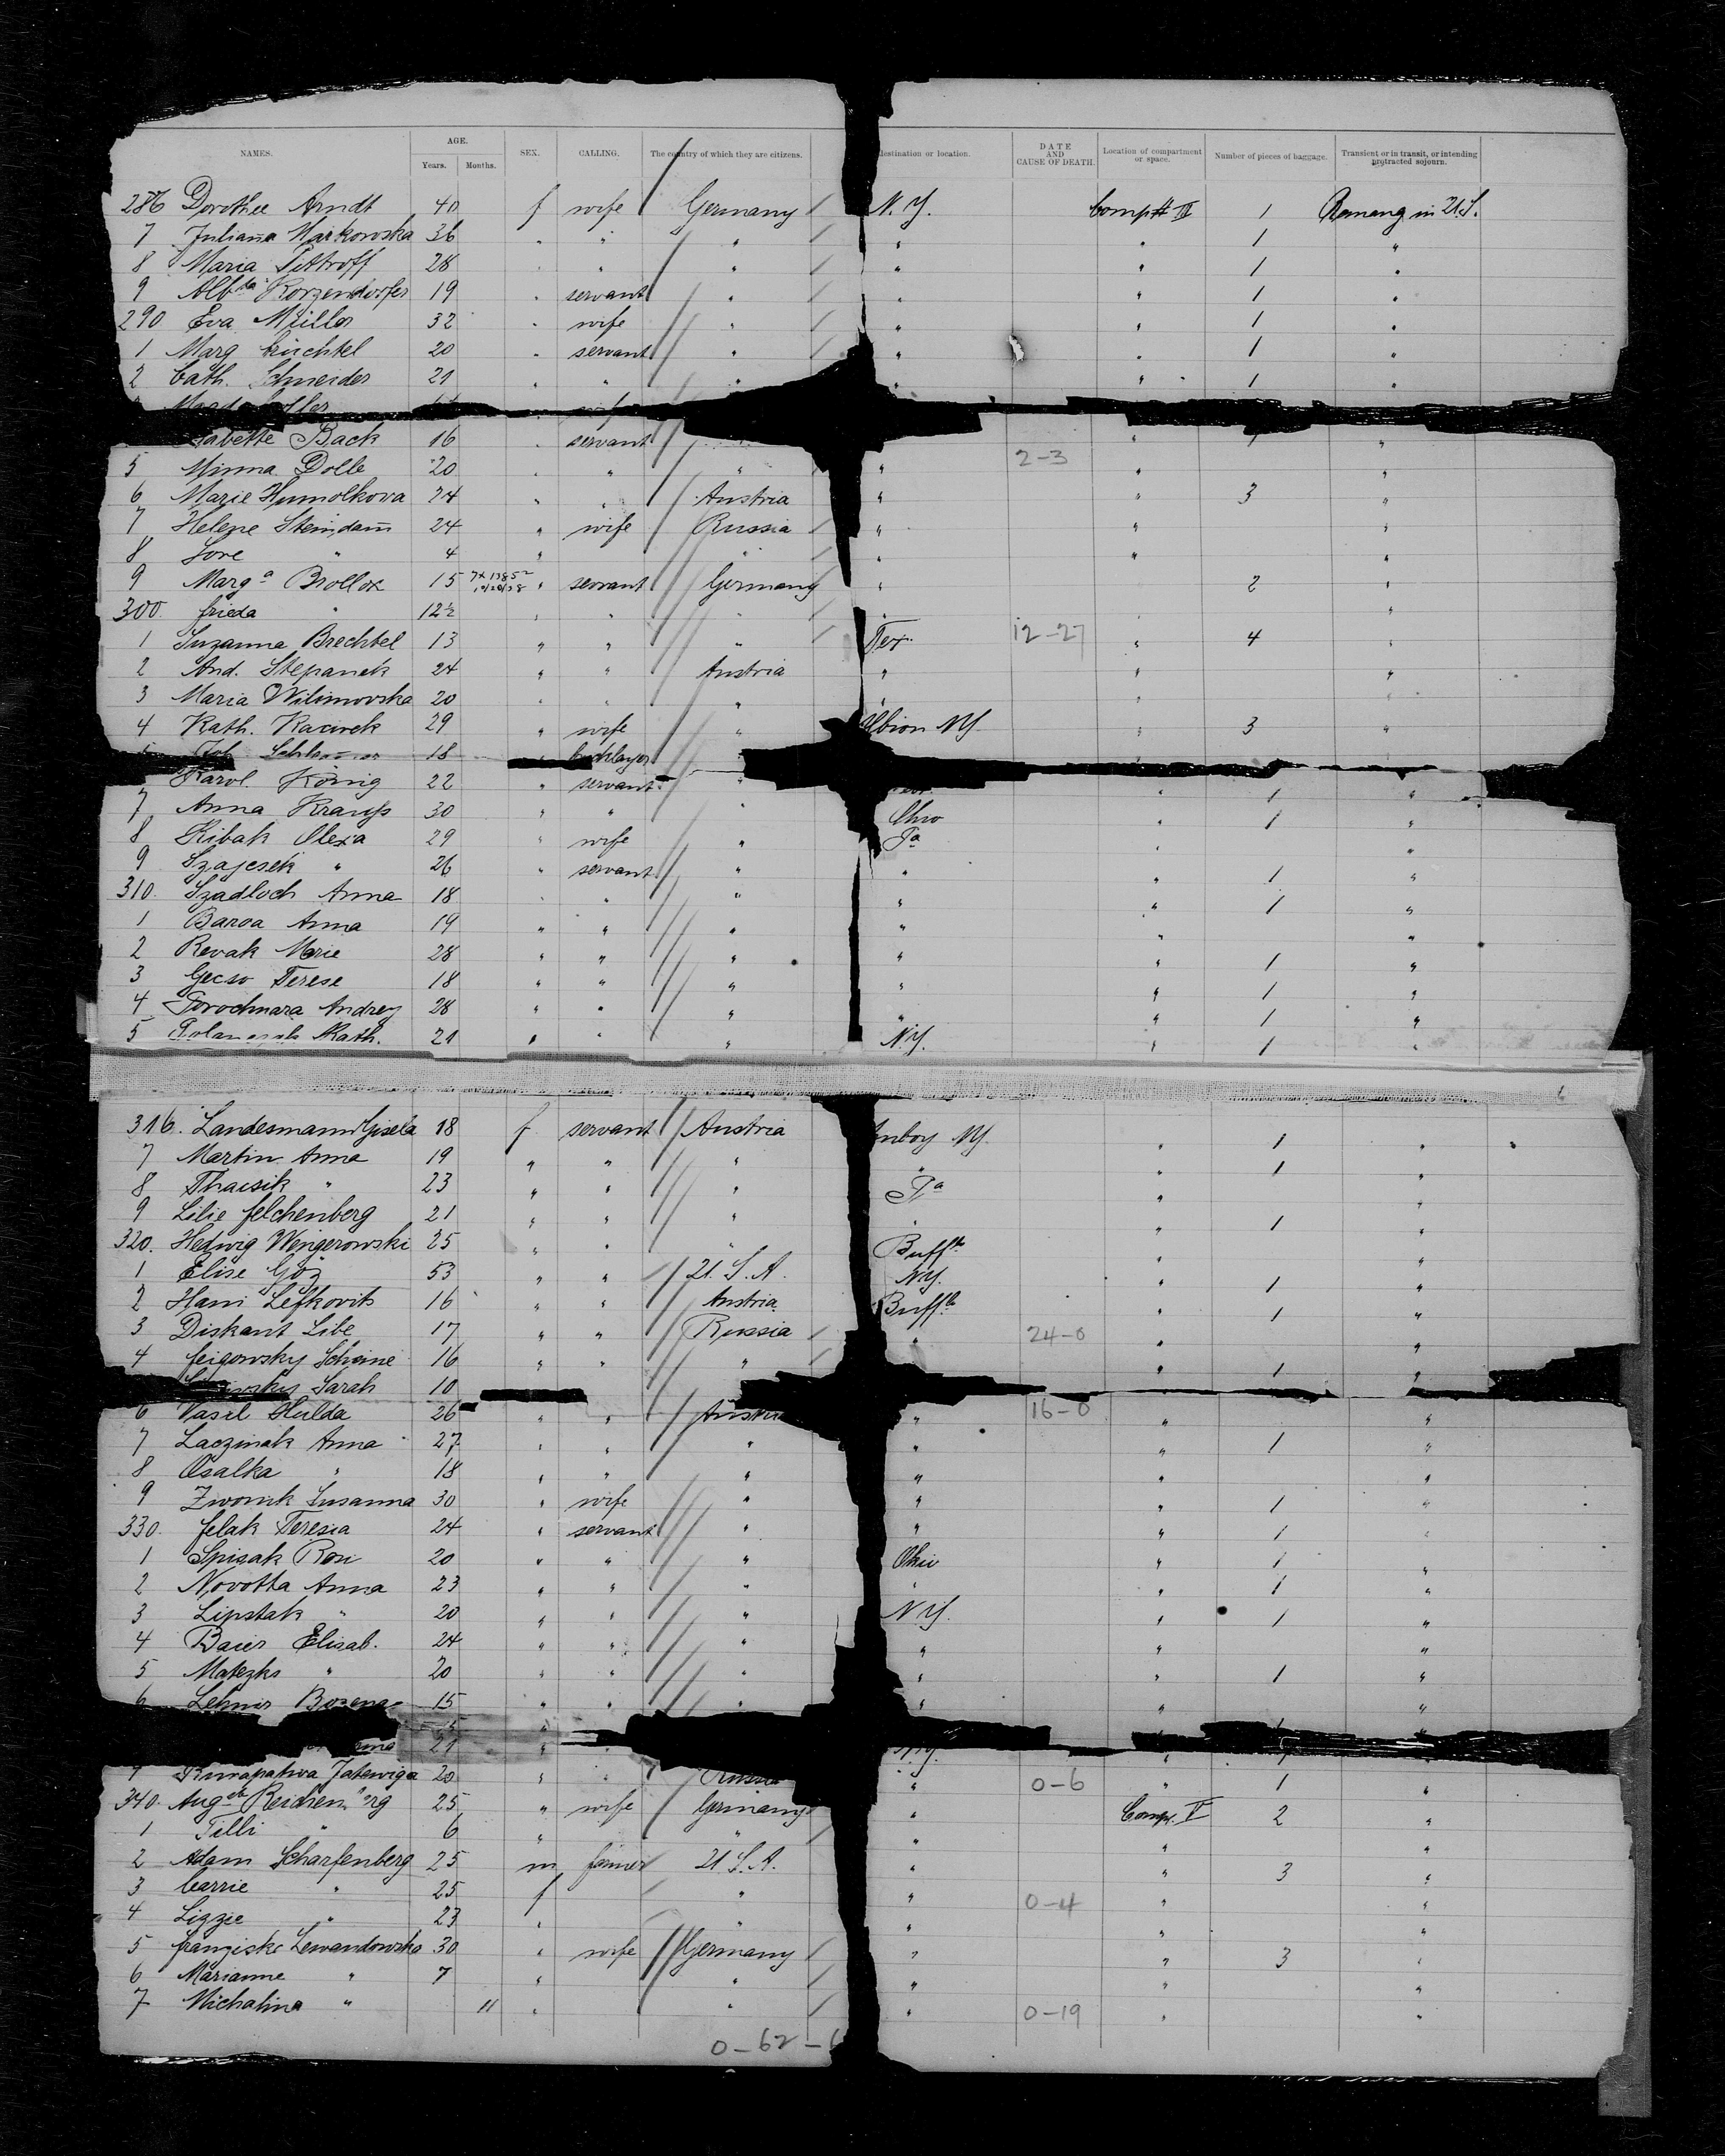 NAMES. AGE. SEX. CALLING. The country of which they are citizens. destination or location. DATE AND CAUSE OF DEATH. Location of compartment or space. Number of pieces of baggage. Transient or in transit, or intending protracted sojourn.
Years. Months.
286 Dorothee Arndt 40 f wife Germany N.Y. Compt II 1 Remang in U.S.
7 Juliana Markowska 36 " " " " " 1 "
8 Maria 28 " " " " " 1 "
9 Korzendorfer 19 " servant " " " 1 "
290 Eva Müller 32 " wife " " " 1 "
1 Marg 20 " servant " " " 1 "
2 Cath. Schneider 21 " " " " " 1 "
Babette Back 16 " servant " "
5 Minna Dolle 20 " " " " 2-3 " "
6 Marie Humolkova 24 " " Austria " " 3 "
7 Helene Steindam̄ 24 " wife Russia " " "
8 Lore " 4 " " " " "
9 Marga Brollox 15 " servant Germany " 2 "
300. frieda " 12½ " " " " "
1 Suzanna Brechtel 13 " " " Tex. 12-27 " 4 "
2 And. Stepanek 24 " " Austria " " "
3 Maria Wilimovska 20 " " " " " "
4 Kath. Racirek 29 " wife " Albion NY. " 3 "
18
Karol. König 22 " servant " " 1 "
7 Anna Krauss 30 " " " Ohio " 1 "
8 Kibak Olexa 29 " wife " Pa " "
9 Szajcsek " 26 " servant " " " 1 "
310. Szadloch Anna 18 " " " " " 1 "
1 Baroa Anna 19 " " " " " "
2 Revak Marie 28 " " " " " 1 "
3 Gecso Terese 18 " " " " " 1 "
4 Andrey 28 " " " " " 1 "
5 Kath. 21 " " " N.Y. " 1 "
316. Landesmann Gisela 18 f servant Austria NY. " 1 "
7 Martin Anna 19 " " " " " 1 "
8 Thaisik " 23 " " " Pa " "
9 Lilie felchenberg 21 " " " " " 1 "
320. Hedwig Wengerowski 25 " " " Buffo " "
1 Elise Göz 53 " " U.S.A. NY. " 1 "
2 Hani Lefkovits 16 " " Austria Buffo " 1 "
3 Diskant Libe 17 " " Russia " 24-0 " "
4 feigowsky Scheine 16 " " " " 1 "
Sarah 10
6 Vasil Hulda 26 " " Austria " 16-0 " "
7 Laczinak Anna 27 " " " " " 1 "
8 Osalka " 18 " " " " " "
9 Zwornik Susanna 30 " wife " " " 1 "
330. felak Teresia 24 " servant " " " 1 "
1 Spisak Rosi 20 " " " Ohio " 1 "
2 Novotta Anna 23 " " " " " 1 "
3 Lipstak " 20 " " " N.Y. " 1 "
4 Baier Elisab. 24 " " " " " "
5 Matezks " 20 " " " " " 1 "
6 Bozena 15 " " " " " "
21 "
Jatewiga 20 " " Russia " 0-6 " 1 "
340. 25 " wife Germany " Comp. V 2 "
1 Tilli " 6 " " " " "
2 Adam Scharfenberg 25 m farmer U.S.A. " " 3 "
3 Carrie " 25 f " " 0-4 " "
4 Lizzie " 23 " " " " "
5 franziska Lewandowska 30 " wife Germany " " 3 "
6 Marianne " 7 " " " " "
7 Michalina " 11 " " " 0-19 " "
0-62-